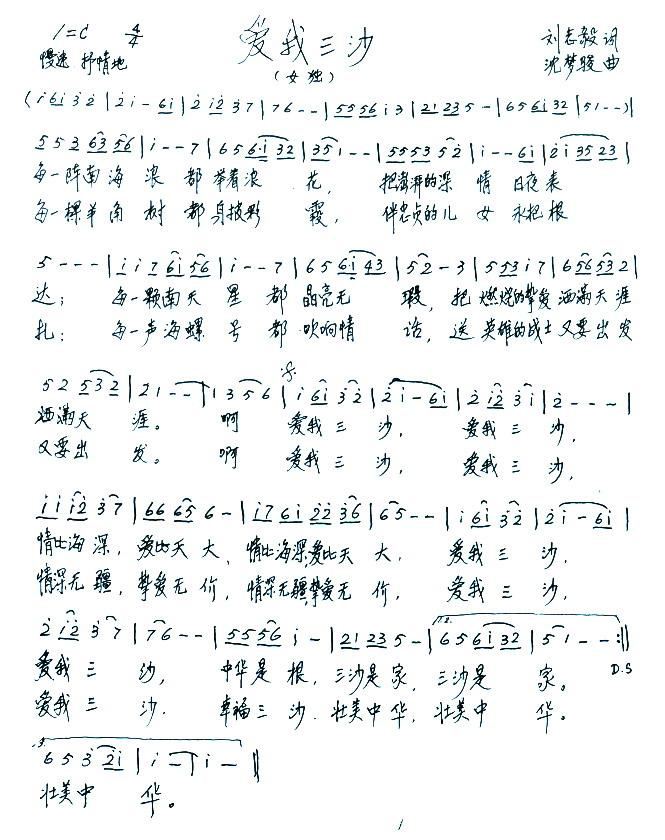 1=C 4/4 爱我三沙 刘志毅 词
慢速 抒情地 (女独) 沈梦骏 曲
(i 6i 3 2 | 2 i - 6i | 2 i2 3 7 | 7 6 - - | 55 56 i 3 | 21 23 5 - | 6 5 6i 32 | 5 1 - -)
5 5 2 63 56 | i - - 7 | 6 5 6·i 32 | 35 1 - - | 55 53 5 2 | i - - 6i | 2i 35 23 |
每一阵南海 浪 都 举着浪 花, 把澎湃的深 情 日夜表
每一棵羊角 树 都 身披彩 霞, 伴忠贞的儿 女 永把根
5 - - - | i i 7 6i 56 | i - - 7 | 6 5 6i 43 | 5 2 - 3 | 5 53 i 7 | 6 56 53 2 |
达; 每一颗南天 星 都 晶亮无 瑕, 把 燃烧的挚爱 洒满天涯
扎; 每一声海螺 号 都 吹响情 话, 送 英雄的战士 又要出发
5 2 53 2 | 2 1 - - | 1 3 5 6 | i 6i 3 2 | 2 i - 6i | 2 i2 3 i | 2 - - - |
洒满天 涯。 啊 爱我 三 沙, 爱我 三 沙,
又要出 发。 啊 爱我 三 沙, 爱我 三 沙,
i i i2 3 7 | 66 65 6 - | i7 6i 22 36 | 6 5 - - | i 6i 3 2 | 2 i - 6i |
情比海 深, 爱比天 大, 情比海深爱比天 大, 爱我 三 沙,
情深无 疆, 挚爱无 价, 情深无疆挚爱无 价, 爱我 三 沙,
2 i2 3 7 | 7 6 - - | 55 56 i - | 21 23 5 - | 6 5 6i 32 | 5 1 - - :||
爱我 三 沙, 中华是 根, 三沙是 家, 三沙是 家。 D.S
爱我 三 沙. 幸福三 沙. 壮美中 华, 壮美中 华。
3. 6 5 3 2i | i - - | i - ||
壮美中 华。
1